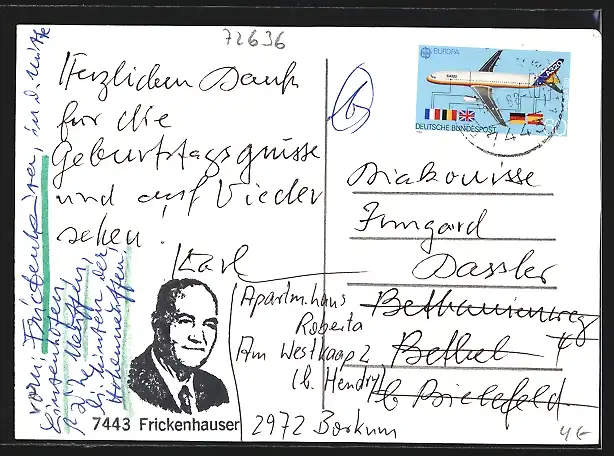 72636
Herzlichen Dank
für die
Geburtstagsgrüsse
und auf Wieder
sehen!
Karl
EUROPA
DEUTSCHE BUNDESPOST
7443
Diakonisse
Irmgard
Dassler
Bethanienweg
Bethel
b Bielefeld
Apartm.haus
Roberta
Am Westkaap 2
(b. Hendryk)
2972 Borkum
vorn: Frickenhausen, in d. Mitte
7443 Frickenhausen
4€